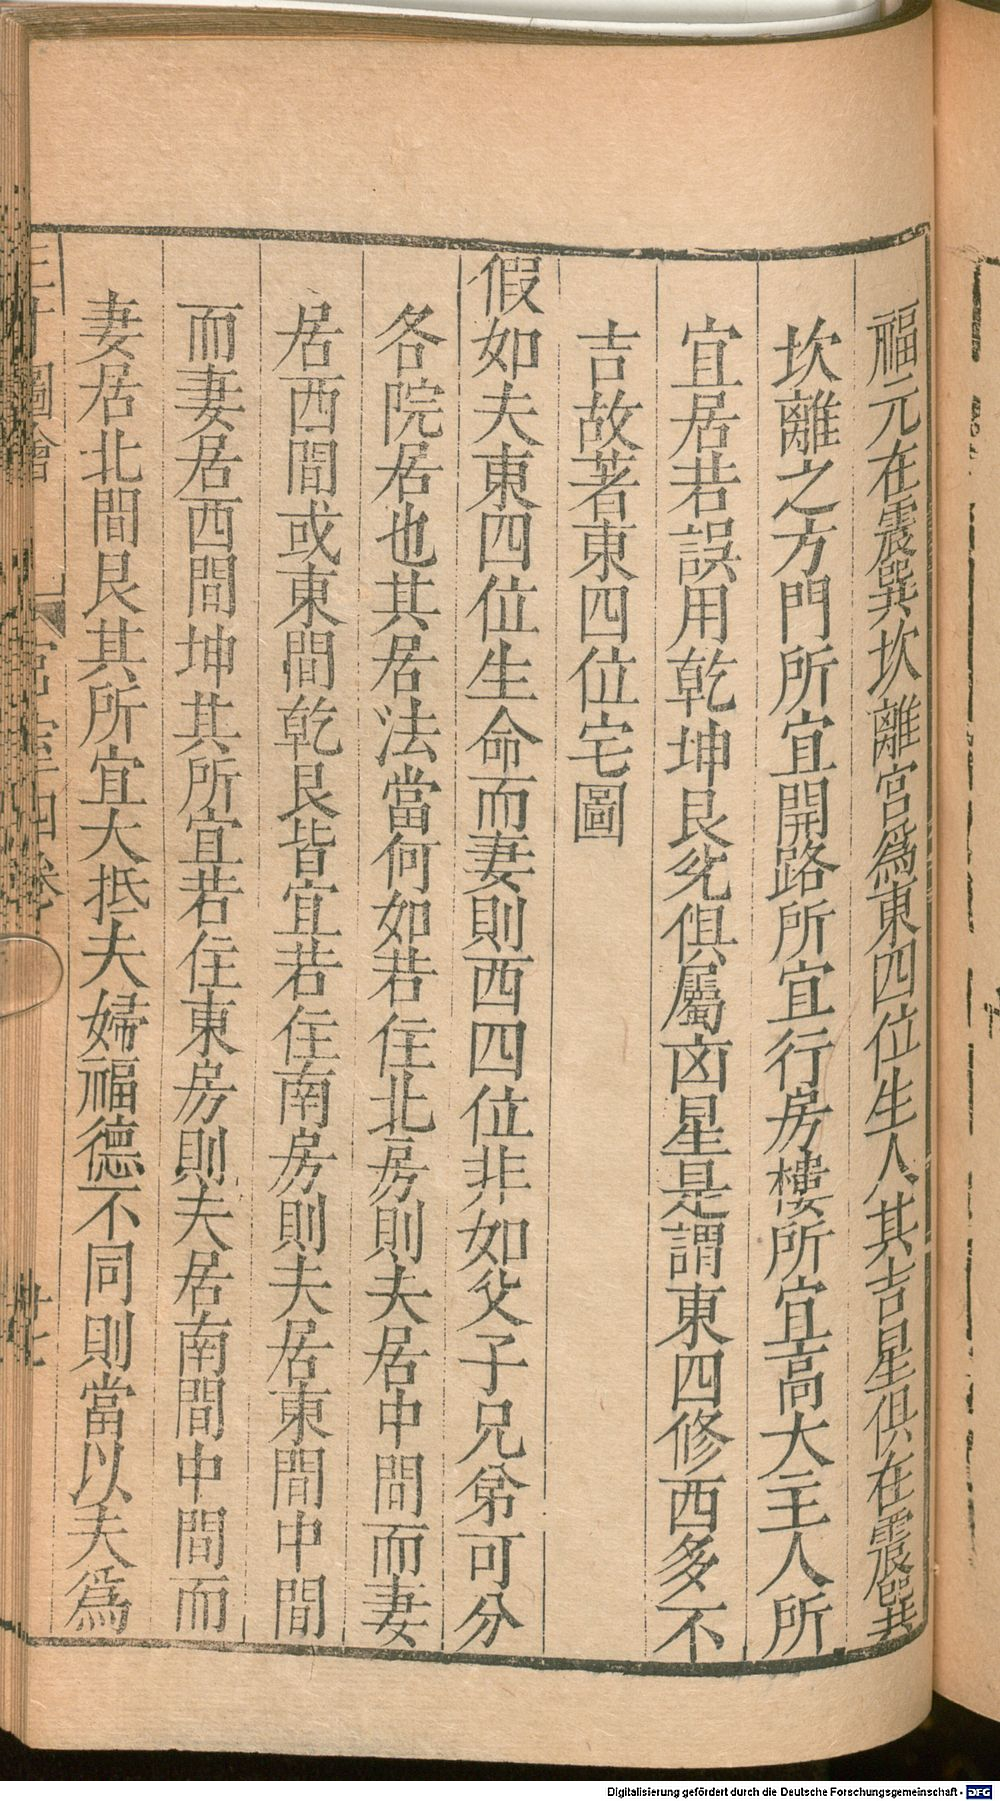 福元在震巽坎離宮為東四位生人其吉星俱在震巽
坎離之方門所宜開路所宜行房樓所宜高大主人所
宜居若誤用乾坤艮兌俱屬凶星是謂東四修西多不
吉故著東四位宅圖
假如夫東四位生命而妻則西四位非如父子兄弟可分
各院居也其居法當何如若住北房則夫居中間而妻
居西間或東間乾艮皆宜若住南房則夫居東間中間
而妻居西間坤其所宜若住東房則夫居南間中間而
妻居北間艮其所宜大抵夫婦福德不同則當以夫為
三才圖會 宮室四卷 廿七
Digitalisierung gefördert durch die Deutsche Forschungsgemeinschaft - DFG